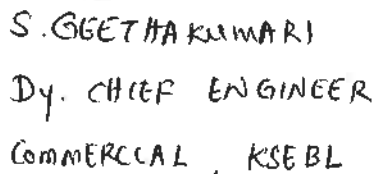 S. GEETHAKUMARI
Dy. CHIEF ENGINEER
COMMERCIAL, KSEBL